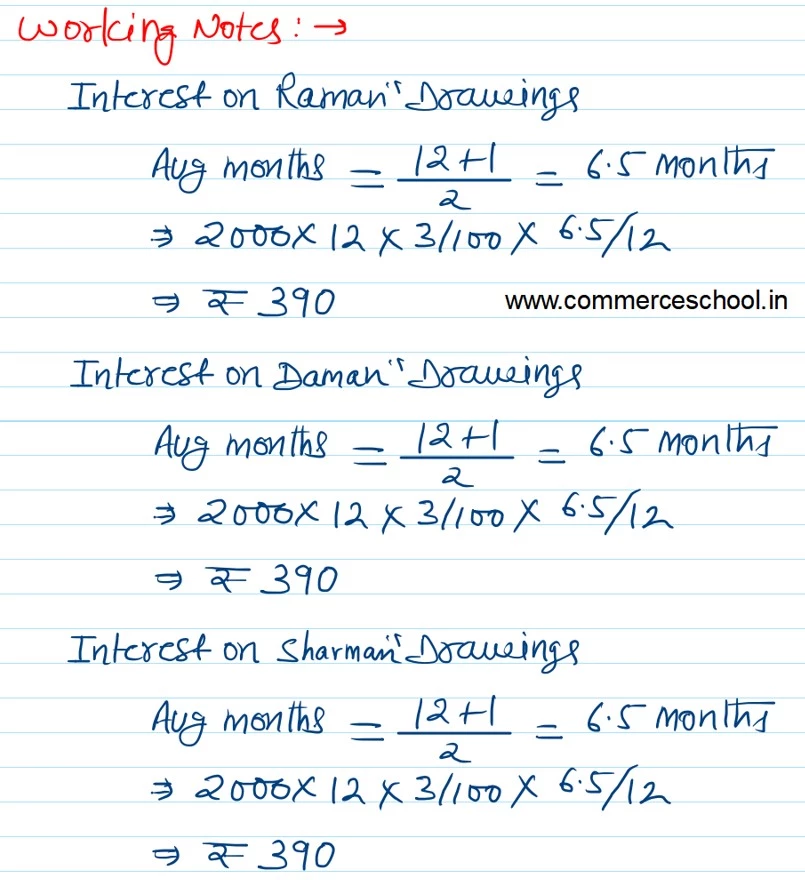 Working Notes: →
Interest on Raman's Drawings
Avg months = 12+1/2 = 6.5 months
⇒ 2000 × 12 × 3/100 × 6.5/12
⇒ ₹ 390
www.commerceschool.in
Interest on Daman's Drawings
Avg months = 12+1/2 = 6.5 months
⇒ 2000 × 12 × 3/100 × 6.5/12
⇒ ₹ 390
Interest on Sharman's Drawings
Avg months = 12+1/2 = 6.5 months
⇒ 2000 × 12 × 3/100 × 6.5/12
⇒ ₹ 390